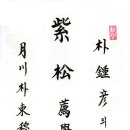 朴鍾彦의
紫松薦
月川朴東